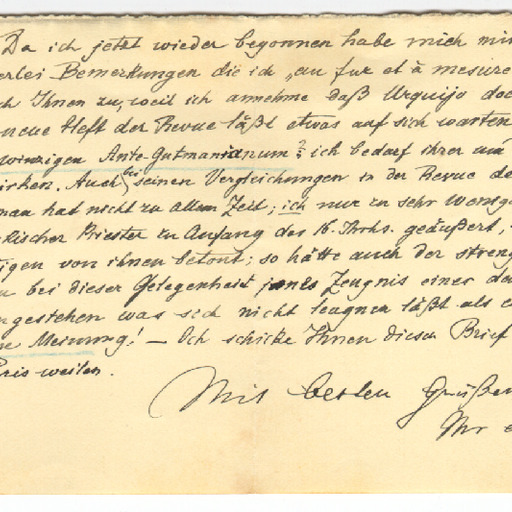 Da ich jetzt wieder begonnen habe mich mi
erlei Bemerkungen die ich „au fur et à mesure
ch Ihnen zu, weil ich annehme daß Urquijo doc
neue Heft der Revue läßt etwas auf sich warten
winzigen Ante-Gutmanianum? ich bedarf ihrer um
irken. Auch bei seinen Vergleichungen in der Revue de
man hat nicht zu allem Zeit; ich nur zu sehr wenig
kischer Priester zu Anfang des 16. Jhrhs. geäußert,
igen von ihnen betont; so hätte auch der streng
bei dieser Gelegenheit jenes Zeugnis eines
ngestehen was sich nicht leugnen läßt als e
Meinung! — Ich schicke Ihnen diesen Brief
aris weilen.
Mit besten Grüßen
Ihr e